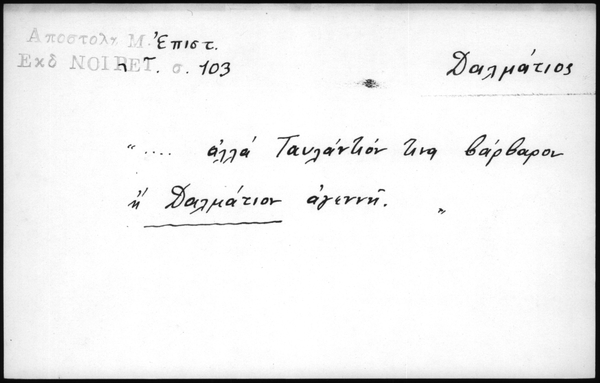 Αποστολη Μ. Ἐπιστ.
Εκδ NOIRET. σ. 103
Δαλμάτιος
" .... ἀλλά Ταυλάντιόν τινα βάρβαρον
ἤ Δαλμάτιον ἀγεννῆ. "